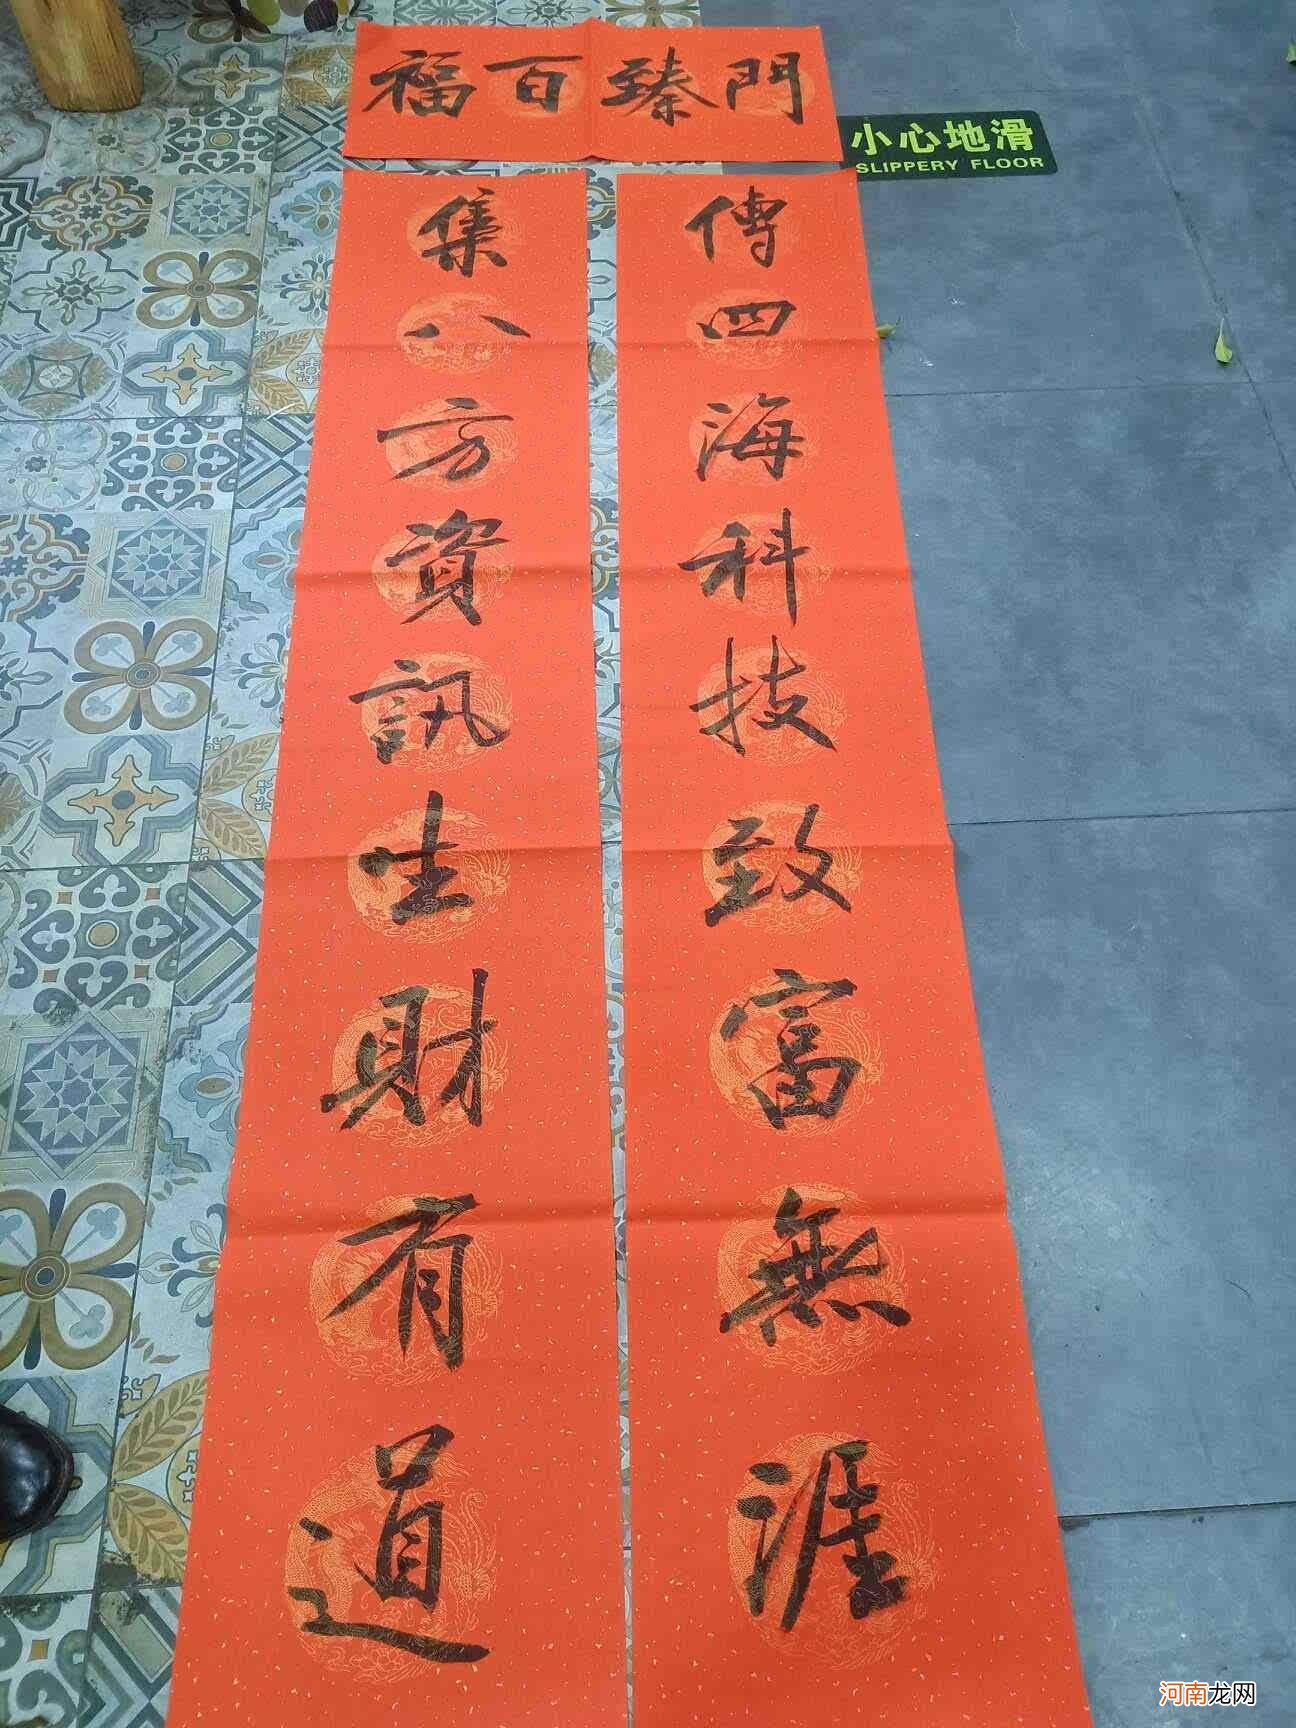 門臻百福
傳四海科技致富無涯
集八方資訊生財有道
小心地滑
SLIPPERY FLOOR
河南龙网